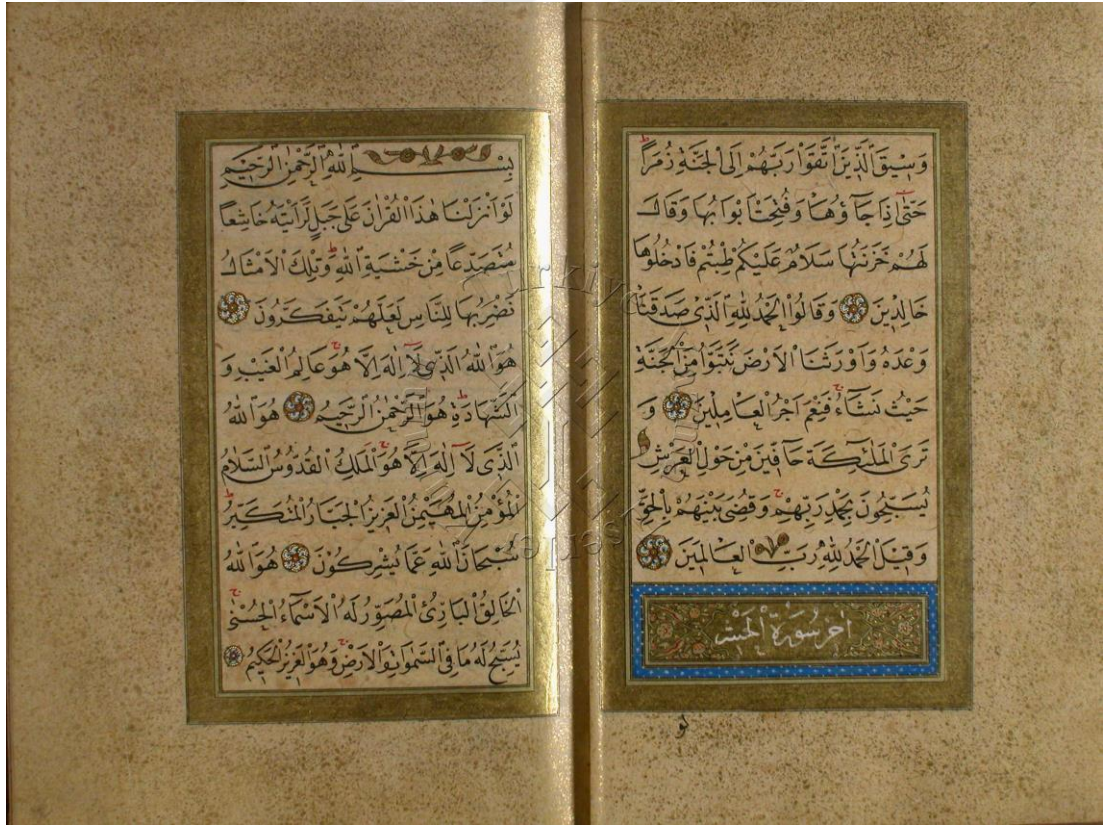 وَسِيقَ الَّذِينَ اتَّقَوْا رَبَّهُمْ إِلَى الْجَنَّةِ زُمَرًا
حَتَّىٰ إِذَا جَآؤُهَا وَفُتِحَتْ اَبْوَابُهَا وَقَالَ
لَهُمْ خَزَنَتُهَا سَلَامٌ عَلَيْكُمْ طِبْتُمْ فَادْخُلُوهَا
خَالِدِينَ وَقَالُوا الْحَمْدُ لِلّٰهِ الَّذِي صَدَقَنَا
وَعْدَهُ وَاَوْرَثَنَا الْاَرْضَ نَتَبَوَّأُ مِنَ الْجَنَّةِ
حَيْثُ نَشَآءُ فَنِعْمَ اَجْرُ الْعَامِلِينَ وَ
تَرَى الْمَلٰٓئِكَةَ حَآفِّينَ مِنْ حَوْلِ الْعَرْشِ
يُسَبِّحُونَ بِحَمْدِ رَبِّهِمْ وَقُضِيَ بَيْنَهُمْ بِالْحَقِّ
وَقِيلَ الْحَمْدُ لِلّٰهِ رَبِّ الْعَالَمِينَ
اخر سورة الحشر
لو
بِسْمِ اللّٰهِ الرَّحْمٰنِ الرَّحِيمِ
لَوْ اَنْزَلْنَا هٰذَا الْقُرْاٰنَ عَلَى جَبَلٍ لَرَاَيْتَهُ خَاشِعًا
مُتَصَدِّعًا مِنْ خَشْيَةِ اللّٰهِ وَتِلْكَ الْاَمْثَالُ
نَضْرِبُهَا لِلنَّاسِ لَعَلَّهُمْ يَتَفَكَّرُونَ
هُوَ اللّٰهُ الَّذِي لَآ اِلٰهَ اِلَّا هُوَ عَالِمُ الْغَيْبِ وَ
الشَّهَادَةِ هُوَ الرَّحْمٰنُ الرَّحِيمُ هُوَ اللّٰهُ
الَّذِي لَآ اِلٰهَ اِلَّا هُوَ الْمَلِكُ الْقُدُّوسُ السَّلَامُ
الْمُؤْمِنُ الْمُهَيْمِنُ الْعَزِيزُ الْجَبَّارُ الْمُتَكَبِّرُ
سُبْحَانَ اللّٰهِ عَمَّا يُشْرِكُونَ هُوَ اللّٰهُ
الْخَالِقُ الْبَارِئُ الْمُصَوِّرُ لَهُ الْاَسْمَآءُ الْحُسْنٰى
يُسَبِّحُ لَهُ مَا فِي السَّمٰوَاتِ وَالْاَرْضِ وَهُوَ الْعَزِيزُ الْحَكِيمُ